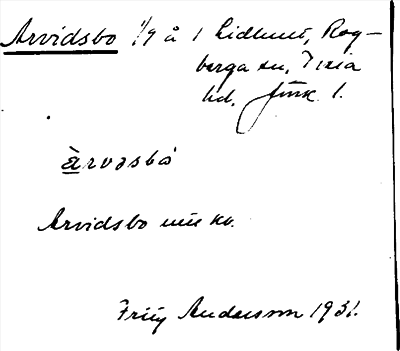 Arvidsbo 1/9 å 1 Lidlunt, Rog-
berga sn, Tveta
hd, Jönk. l.
àrvəsbó
Arvidsbo nu kv.
Andersson 1931.